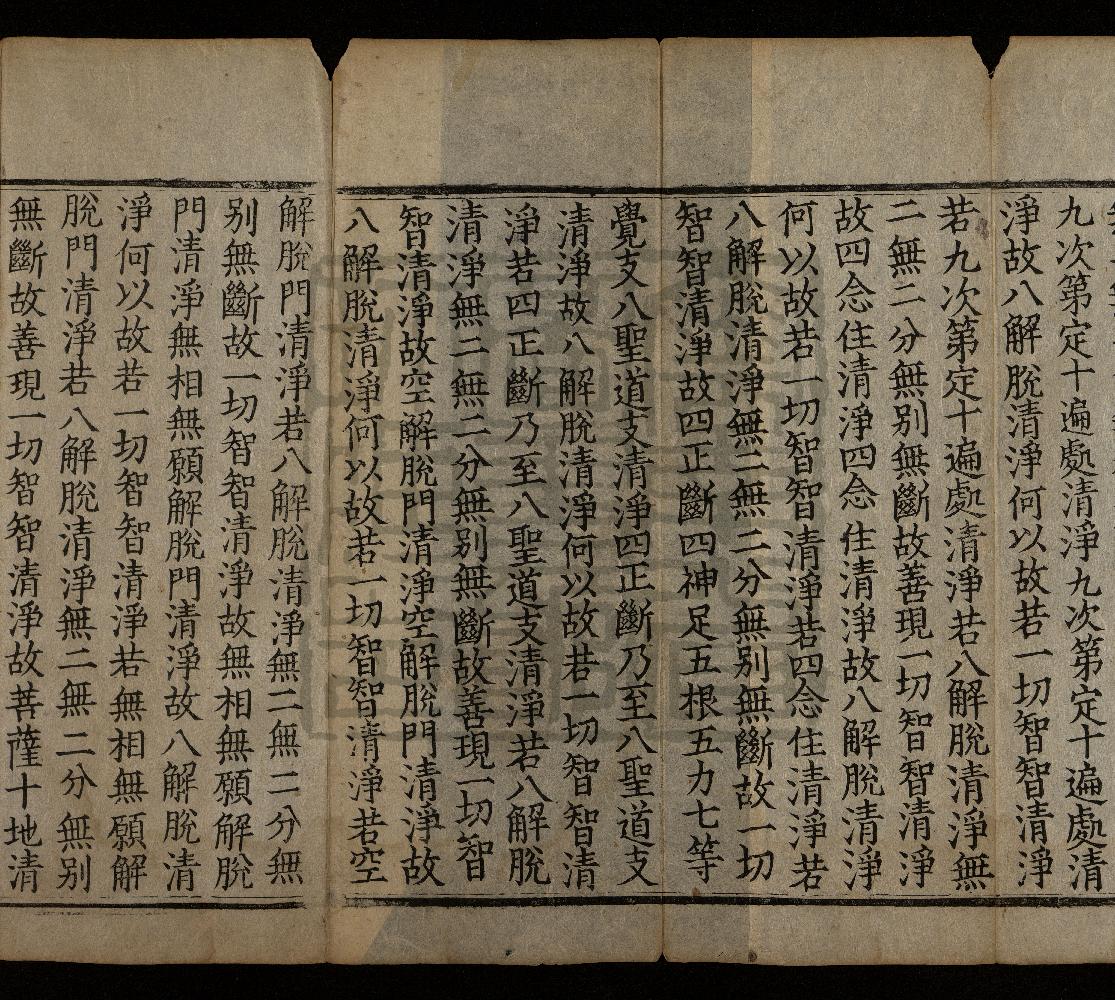 九次第定十遍處清淨九次第定十遍處清
淨故八解脫清淨何以故若一切智智清淨
若九次第定十遍處清淨若八解脫清淨無
二無二分無別無斷故善現一切智智清淨
故四念住清淨四念住清淨故八解脫清淨
何以故若一切智智清淨若四念住清淨若
八解脫清淨無二無二分無別無斷故一切
智智清淨故四正斷四神足五根五力七等
覺支八聖道支清淨四正斷乃至八聖道支
清淨故八解脫清淨何以故若一切智智清
淨若四正斷乃至八聖道支清淨若八解脫
清淨無二無二分無別無斷故善現一切智
智清淨故空解脫門清淨空解脫門清淨故
八解脫清淨何以故若一切智智清淨若空
解脫門清淨若八解脫清淨無二無二分無
別無斷故一切智智清淨故無相無願解脫
門清淨無相無願解脫門清淨故八解脫清
淨何以故若一切智智清淨若無相無願解
脫門清淨若八解脫清淨無二無二分無別
無斷故善現一切智智清淨故菩薩十地清